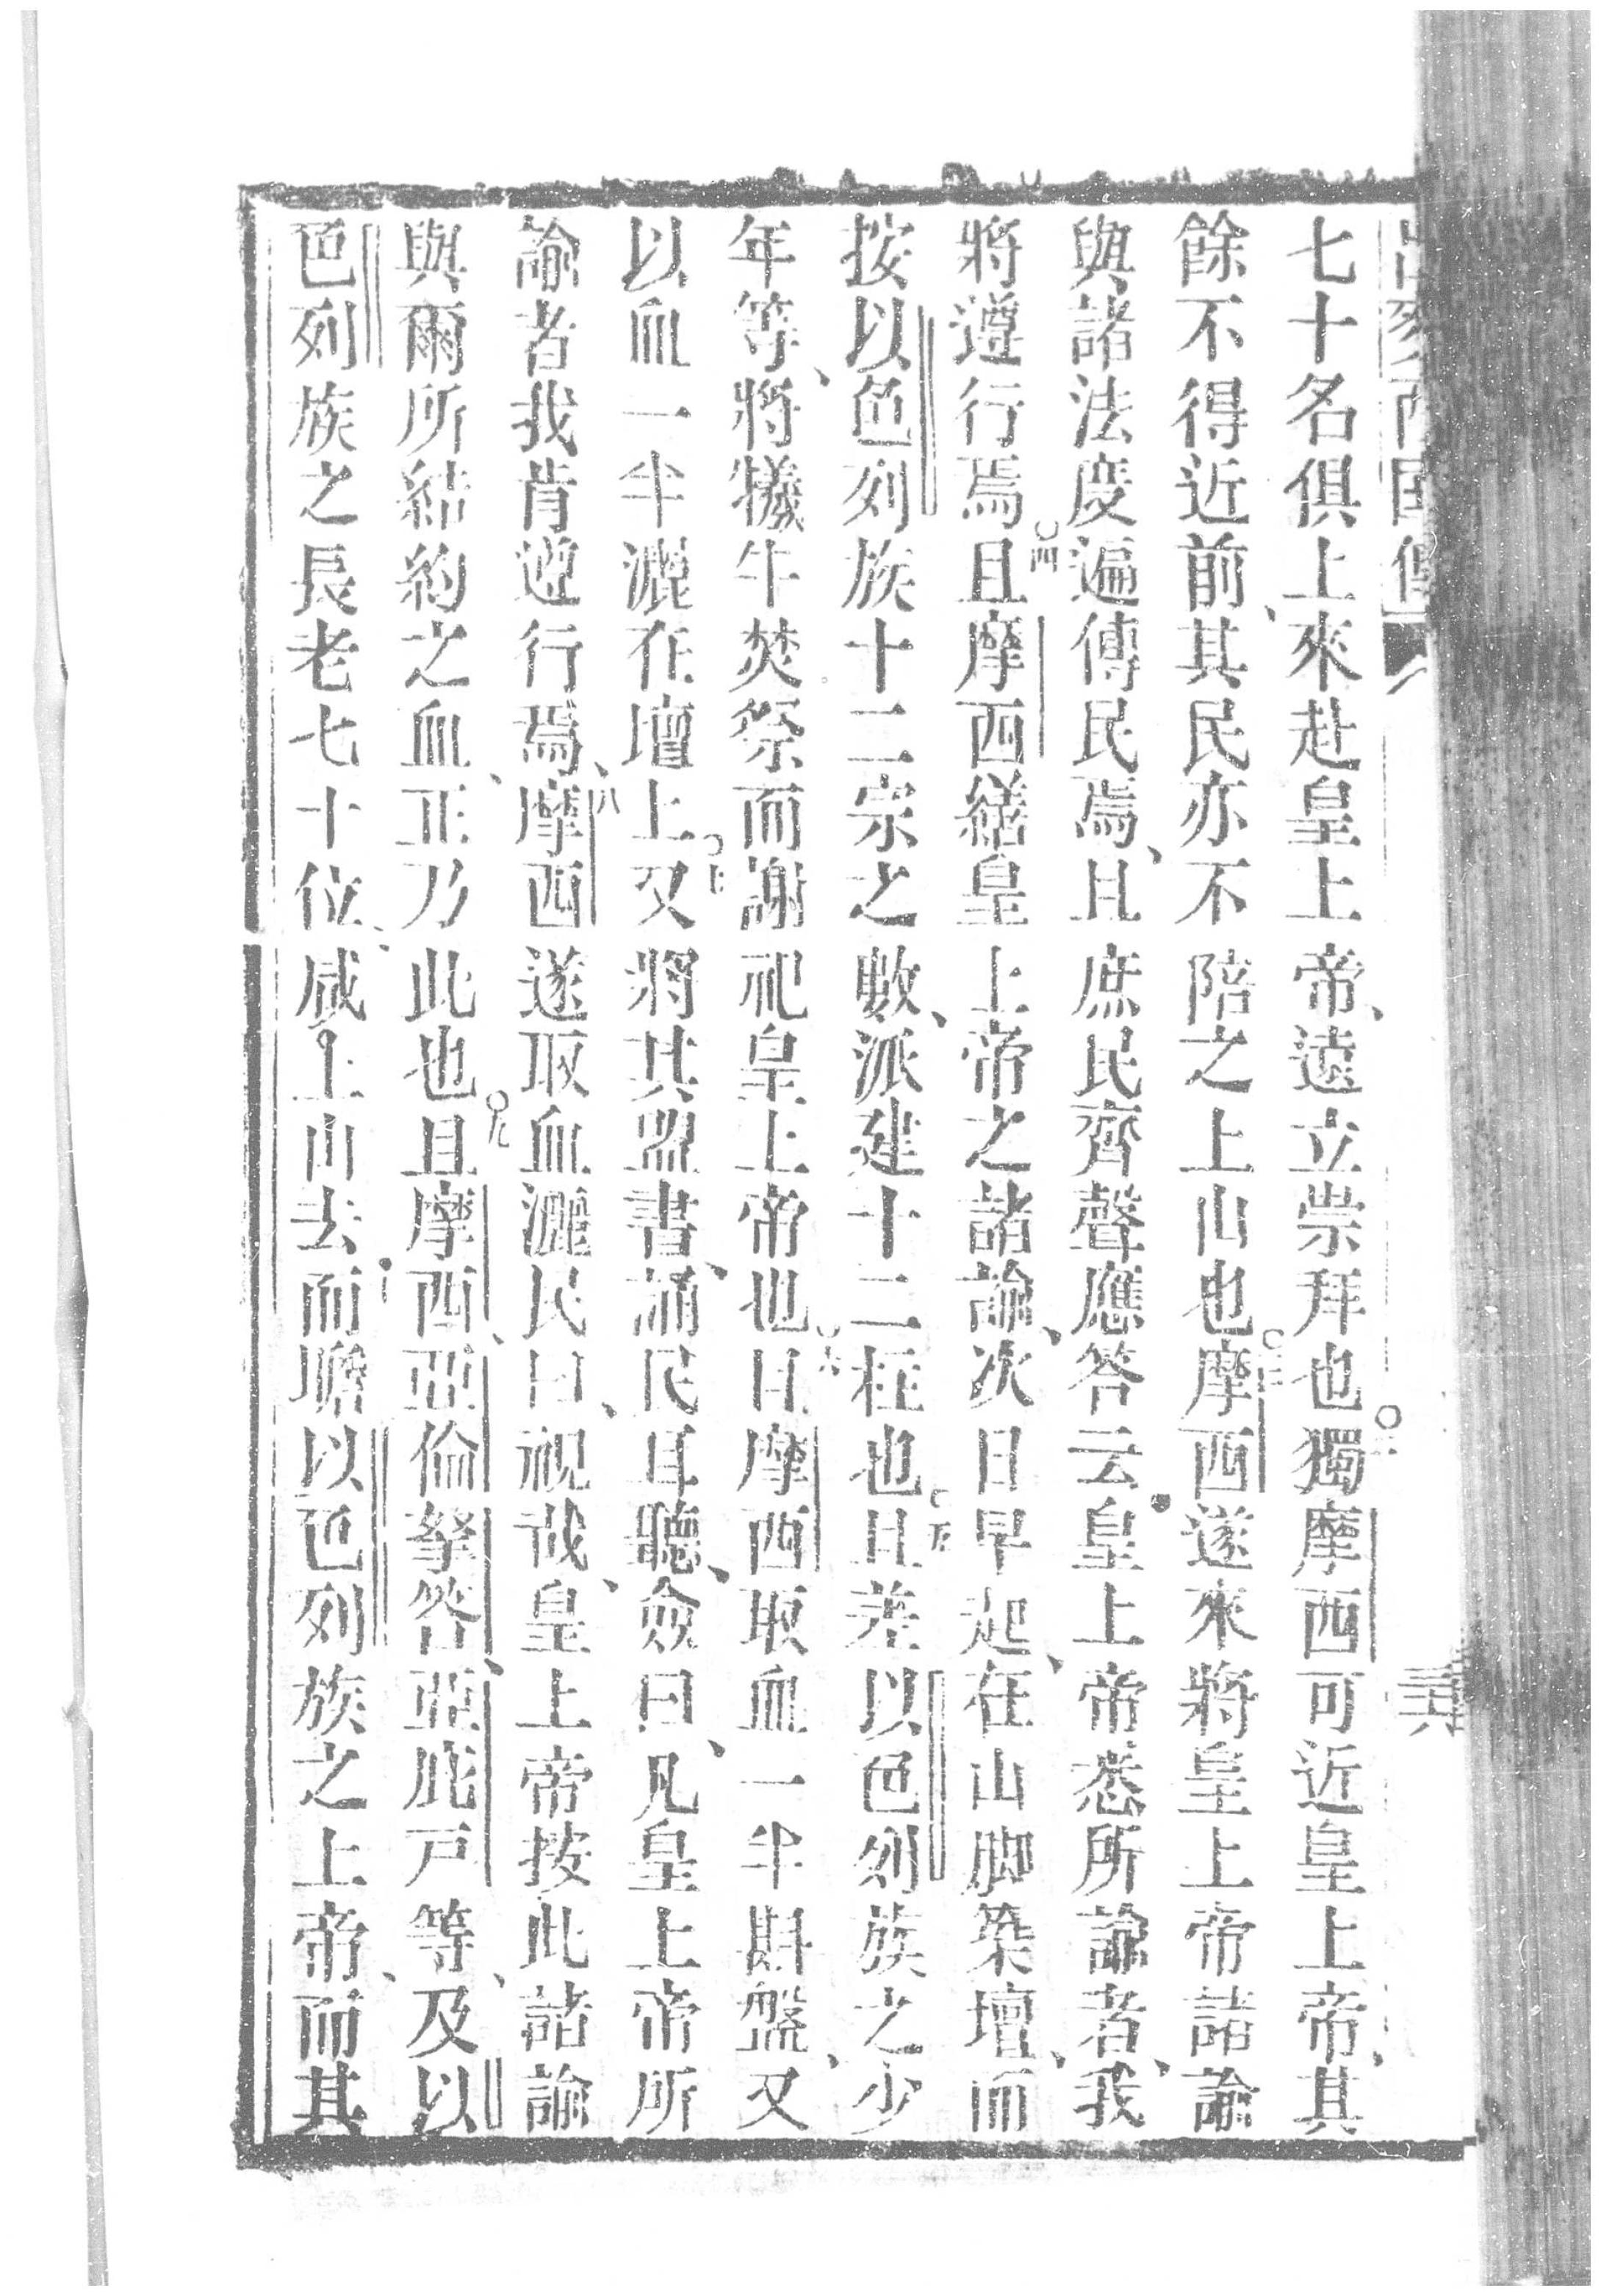 七十名俱上來赴皇上帝、遠立崇拜也○二獨摩西可近皇上帝、其
餘不得近前、其民亦不陪之上山也○三摩西遂來將皇上帝諸諭
與諸法度遍傳民焉、且庶民齊聲應答云皇上帝悉所諭者、我
將遵行焉○四且摩西繕皇上帝之諸諭、次日早起、在山脚築壇、而
按以色列族十二宗之數、派建十二柱也○五且差以色列族之少
年等、將犧牛焚祭而謝祀皇上帝也○六且摩西取血一半斟盤、又
以血一半灑在壇上○七又將其盟書、誦民耳聽、僉曰、凡皇上帝所
諭者我肯遵行焉、八摩西遂取血灑民曰、視哉、皇上帝按此諸諭
與爾所結約之血、正乃此也○九且摩西、亞倫拏答、亞庇戶等、及以
色列族之長老七十位、咸上山去、而瞻以色列族之上帝、而其
三十六